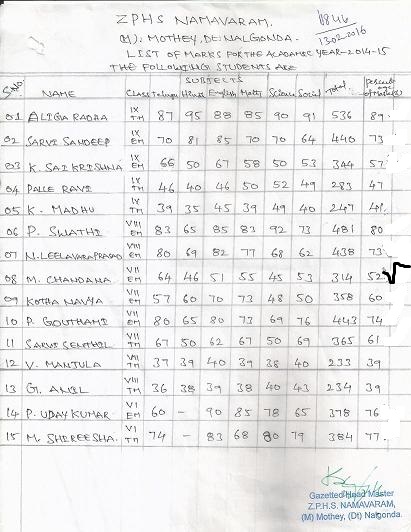 Z.P.H.S NAMAVARAM.
(M): MOTHEY, Dt: NALGONDA.
13-02-2016
LIST OF MARKS FOR THE ACADAMIC YEAR-2014-15
THE FOLLOWING STUDENTS ARE
SUBJECTS
S.NO. NAME Class Telugu Hindi English Maths Science Social Total
01 ALIGIA RADHA IX TM 87 95 88 85 90 91 536 89.
02 SARVI SANDEEP IX EM 70 81 85 70 70 64 440 73
03 K. SAI KRISHNA IX EM 66 50 67 58 50 53 344 57
04 PALLE RAVI IX TM 46 40 46 50 52 49 283 47
05 K. MADHU IX TM 39 35 45 39 49 40 247 41.
06 P. SWATHI VIII EM 83 65 85 83 92 73 481 80
07 N. LEELAVARAPRASAD VIII EM 80 69 82 77 68 62 438 73
08 M. CHANDANA VIII EM 64 46 51 55 45 53 314 52
09 KOTHA NAVYA VIII EM 57 60 70 73 48 50 358 60
10 P. GOUTHAMI VIII EM 80 65 80 73 69 76 443 74
11 SARVI SENTHIL VIII TM 67 50 62 67 50 69 365 61
12 V. MANTULA VII TM 37 39 40 39 38 40 233 39
13 G. ANIL VII TM 36 38 39 38 40 43 234 39
14 P. UDAY KUMAR VI EM 60 - 90 85 78 65 378 76
15 M. SHEREESHA. VI TM 74 - 83 68 80 79 384 77.
Gazetted Head Master
Z.P.H.S. NAMAVARAM,
(M) Mothey, (Dt) Nalgonda.